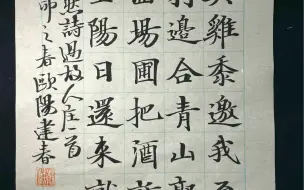 雞黍邀我至
邊合青山郭
面場圃把酒話
陽日還來就
然詩過故人庄一首
卯之春歐陽建春